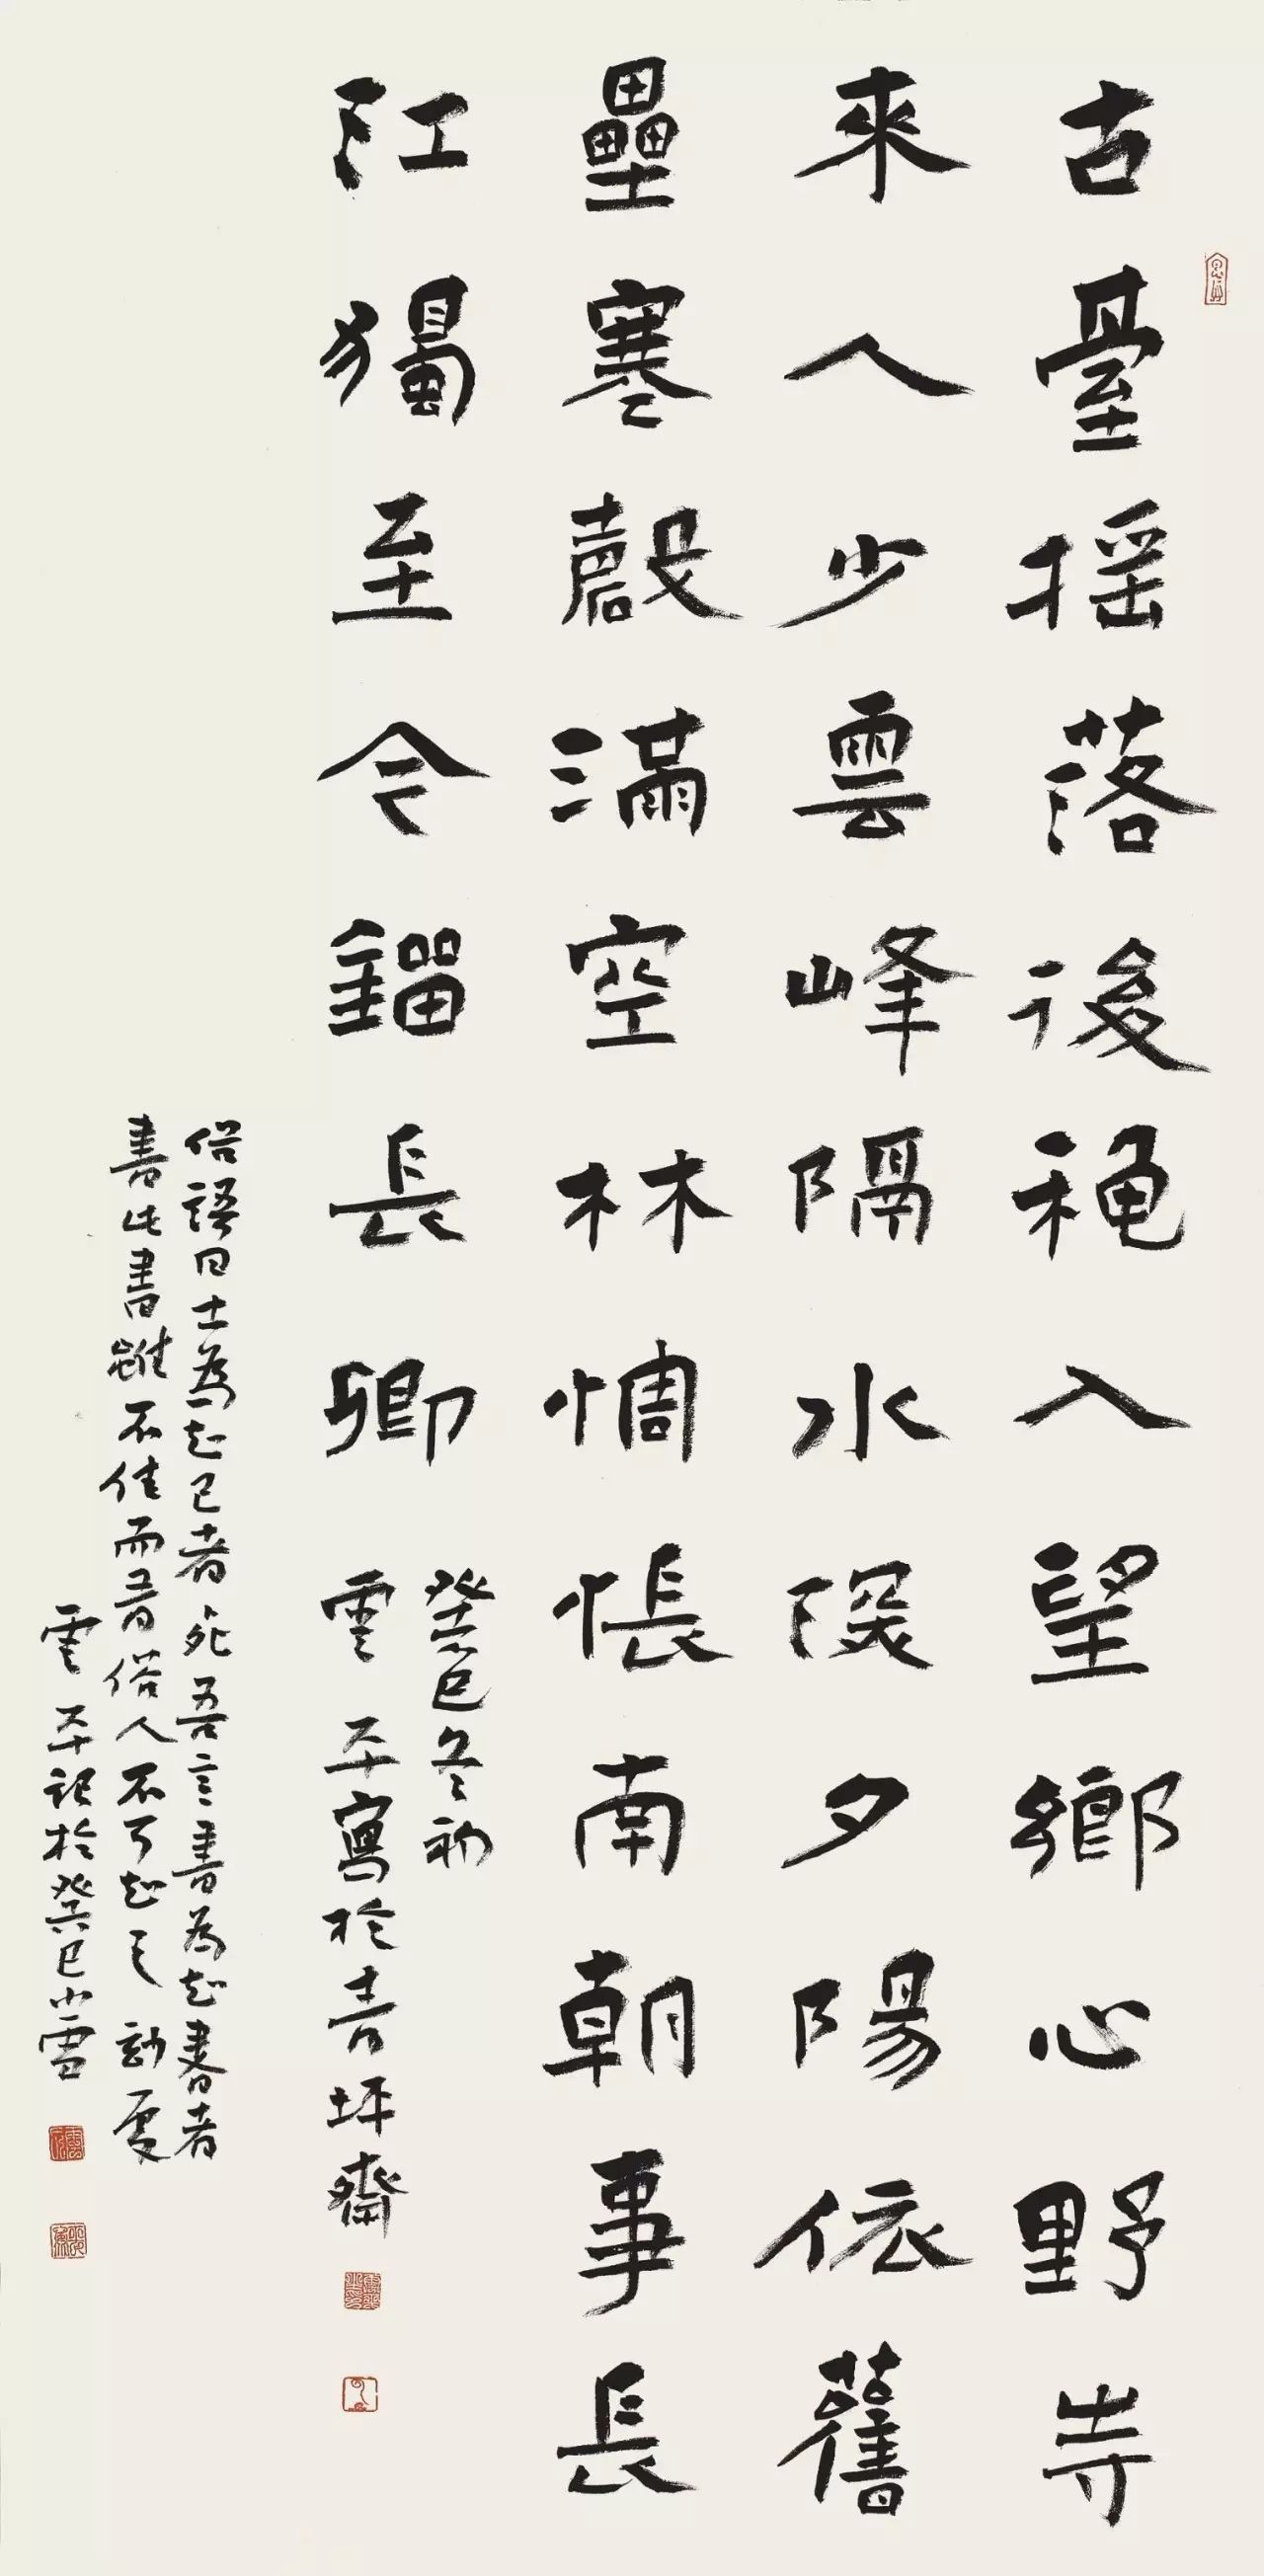 古臺摇落後穐入望鄉心野寺
來人少雲峰隔水深夕陽依舊
壘寒磬滿空林惆悵南朝事長
江獨至今鎦長卿
癸巳冬初
雲平寫於青坪齋
俗語曰士為知己者死吾言書為知書者
書此書雖不佳而俗人不可知之處
雲平記於癸巳小雪